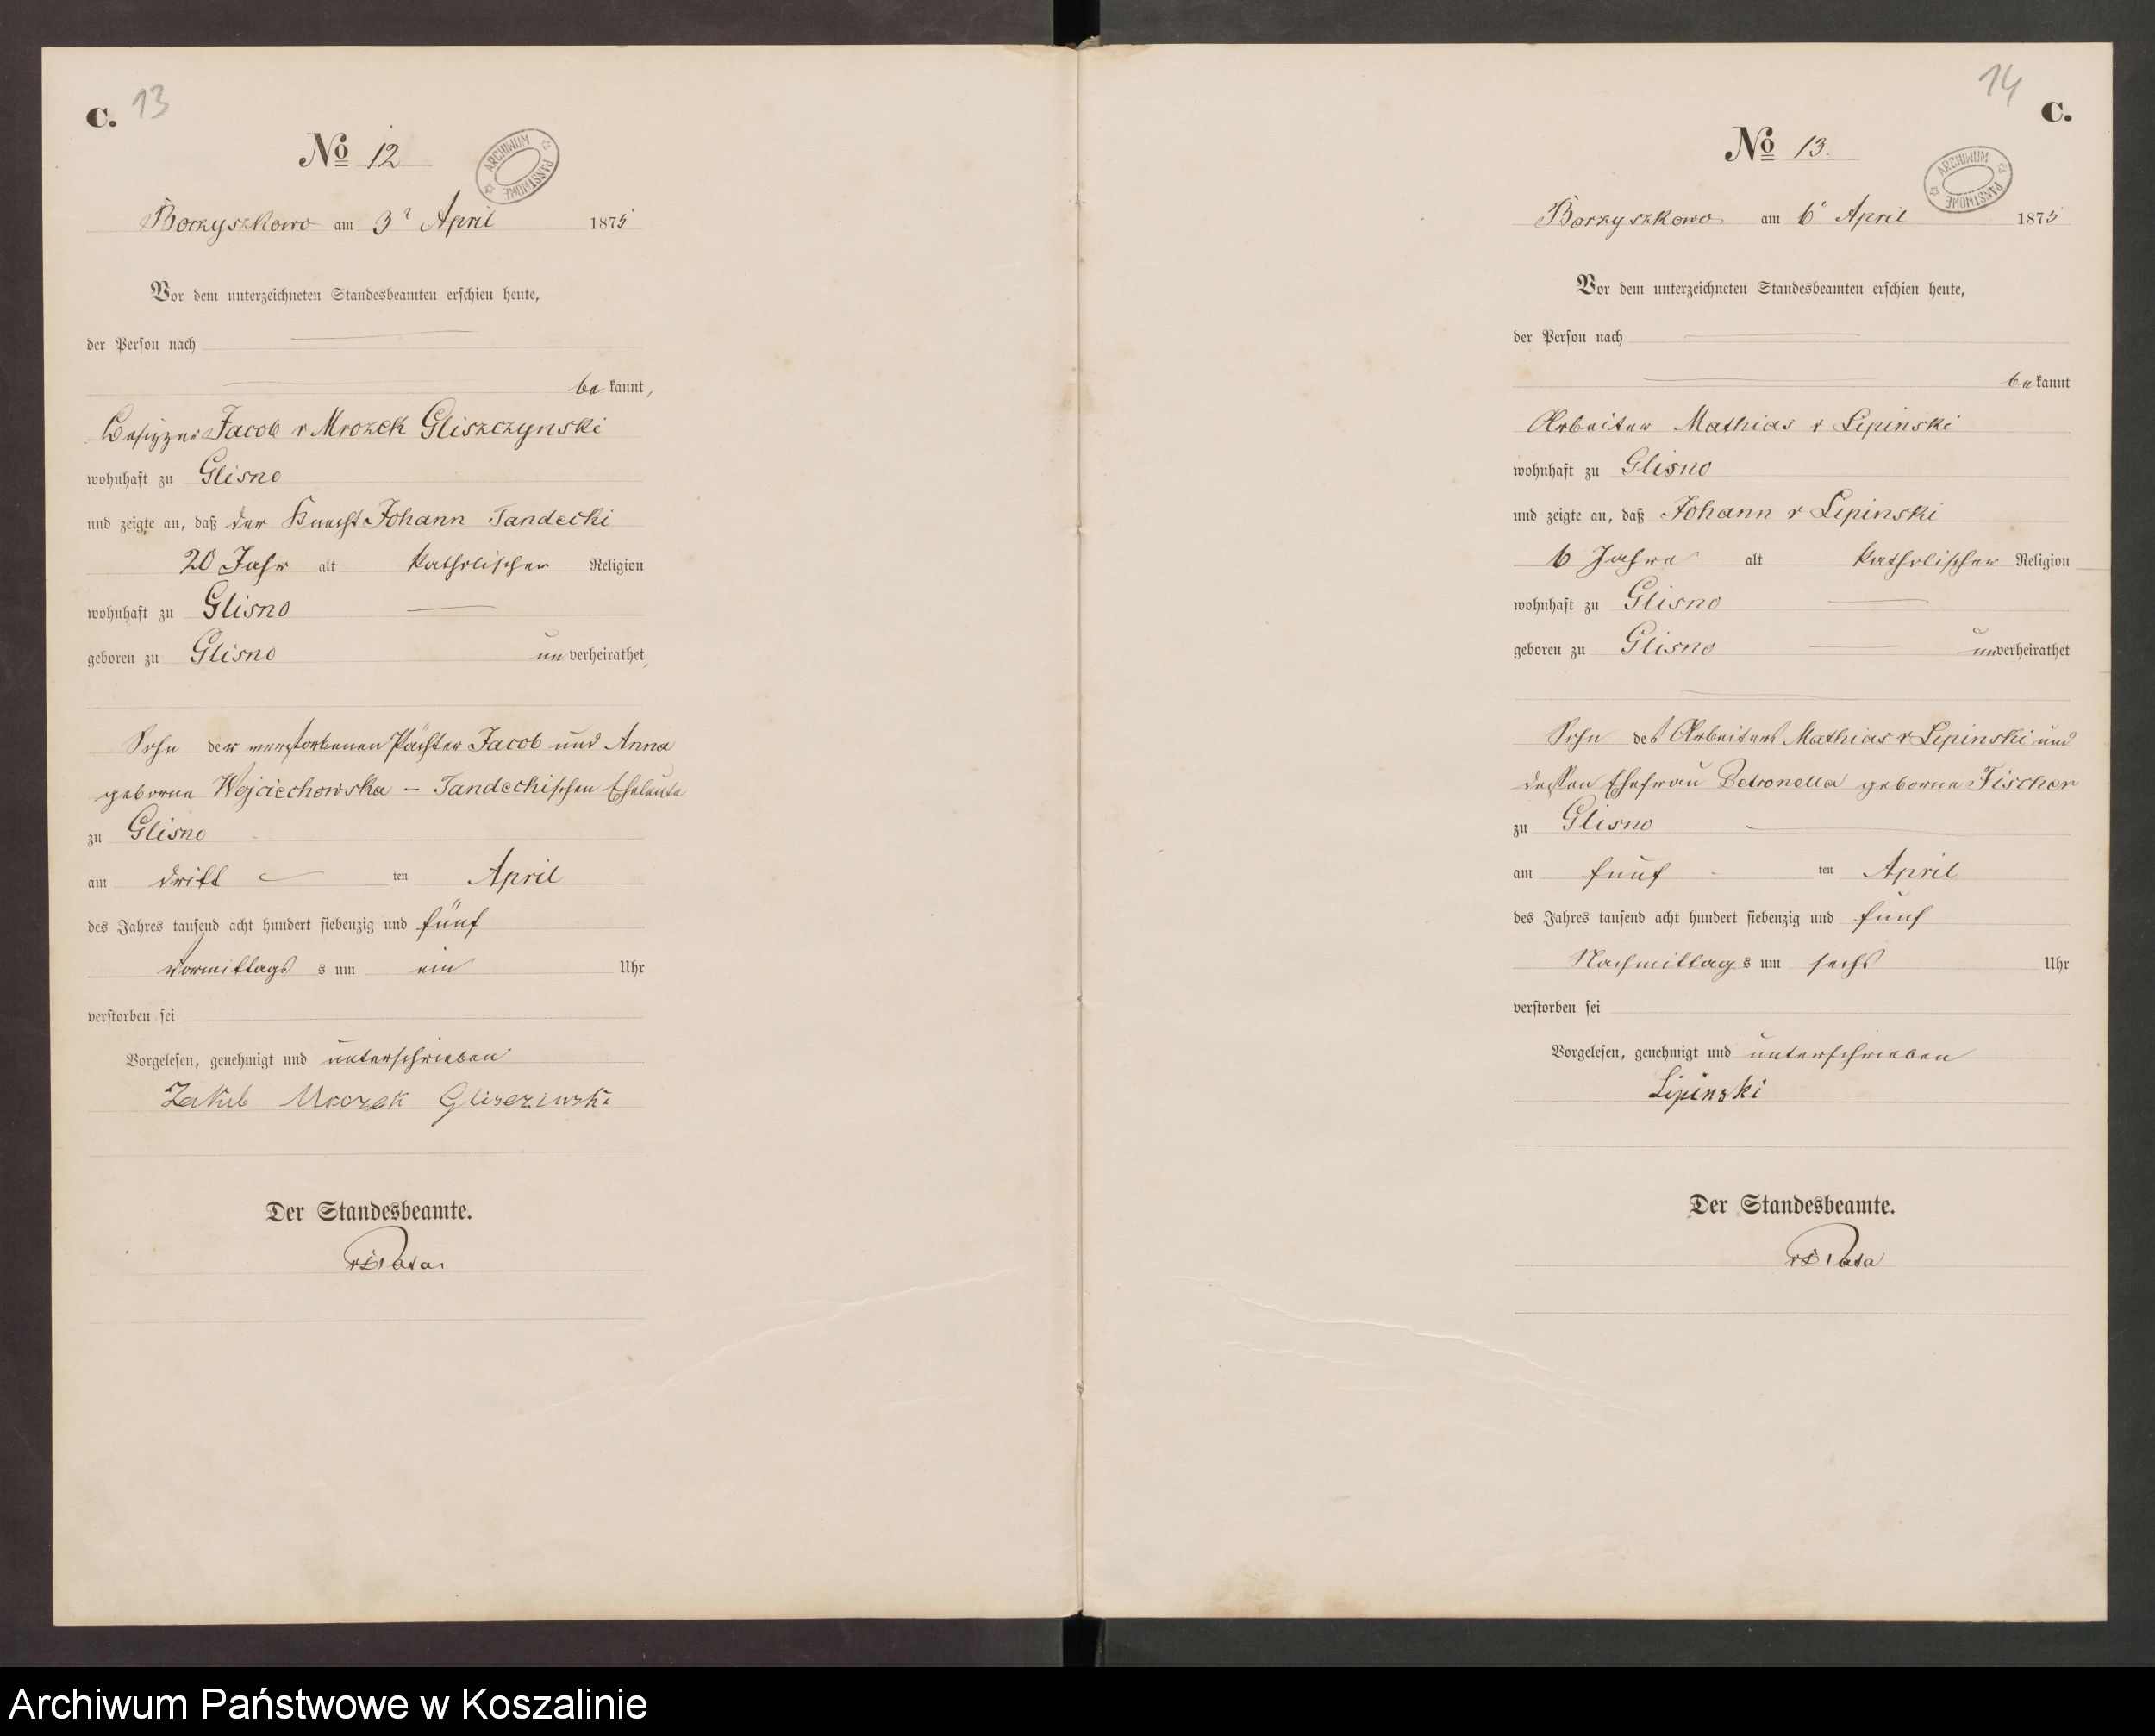 C. 13
No 12
ARCHIWUM PAŃSTWOWE
Borzyszkowo am 3t April 1875
Vor dem unterzeichneten Standesbeamten erschien heute,
der Person nach
bekannt,
Besitzer Jacob v Mrozek Gliszczynski
wohnhaft zu Glisno
und zeigte an, daß der Knecht Johann Tandecki
20 Jahr alt katholischer Religion
wohnhaft zu Glisno
geboren zu Glisno unverheirathet,
Sohn der verstorbenen Pächter Jacob und Anna
geborne Wojciechowska – Tandeckischen Eheleute
zu Glisno
am dritt ten April
des Jahres tausend acht hundert siebenzig und fünf
Vormittags s um ein Uhr
verstorben sei
Vorgelesen, genehmigt und unterschrieben
Jakub Mrozek Gliszczinski
Der Standesbeamte.
14 C.
No 13.
ARCHIWUM PAŃSTWOWE
Borzyszkowo am 6t April 1875
Vor dem unterzeichneten Standesbeamten erschien heute,
der Person nach
bekannt
Arbeiter Mathias v Lipinski
wohnhaft zu Glisno
und zeigte an, daß Johann v Lipinski
6 Jahre alt katholischer Religion
wohnhaft zu Glisno
geboren zu Glisno unverheirathet
Sohn des Arbeiters Mathias v Lipinski und
dessen Ehefrau Petronella geborne Fischer
zu Glisno
am fünf ten April
des Jahres tausend acht hundert siebenzig und fünf
Nachmittags um sechs Uhr
verstorben sei
Vorgelesen, genehmigt und unterschrieben
Lipinski
Der Standesbeamte.
Archiwum Państwowe w Koszalinie